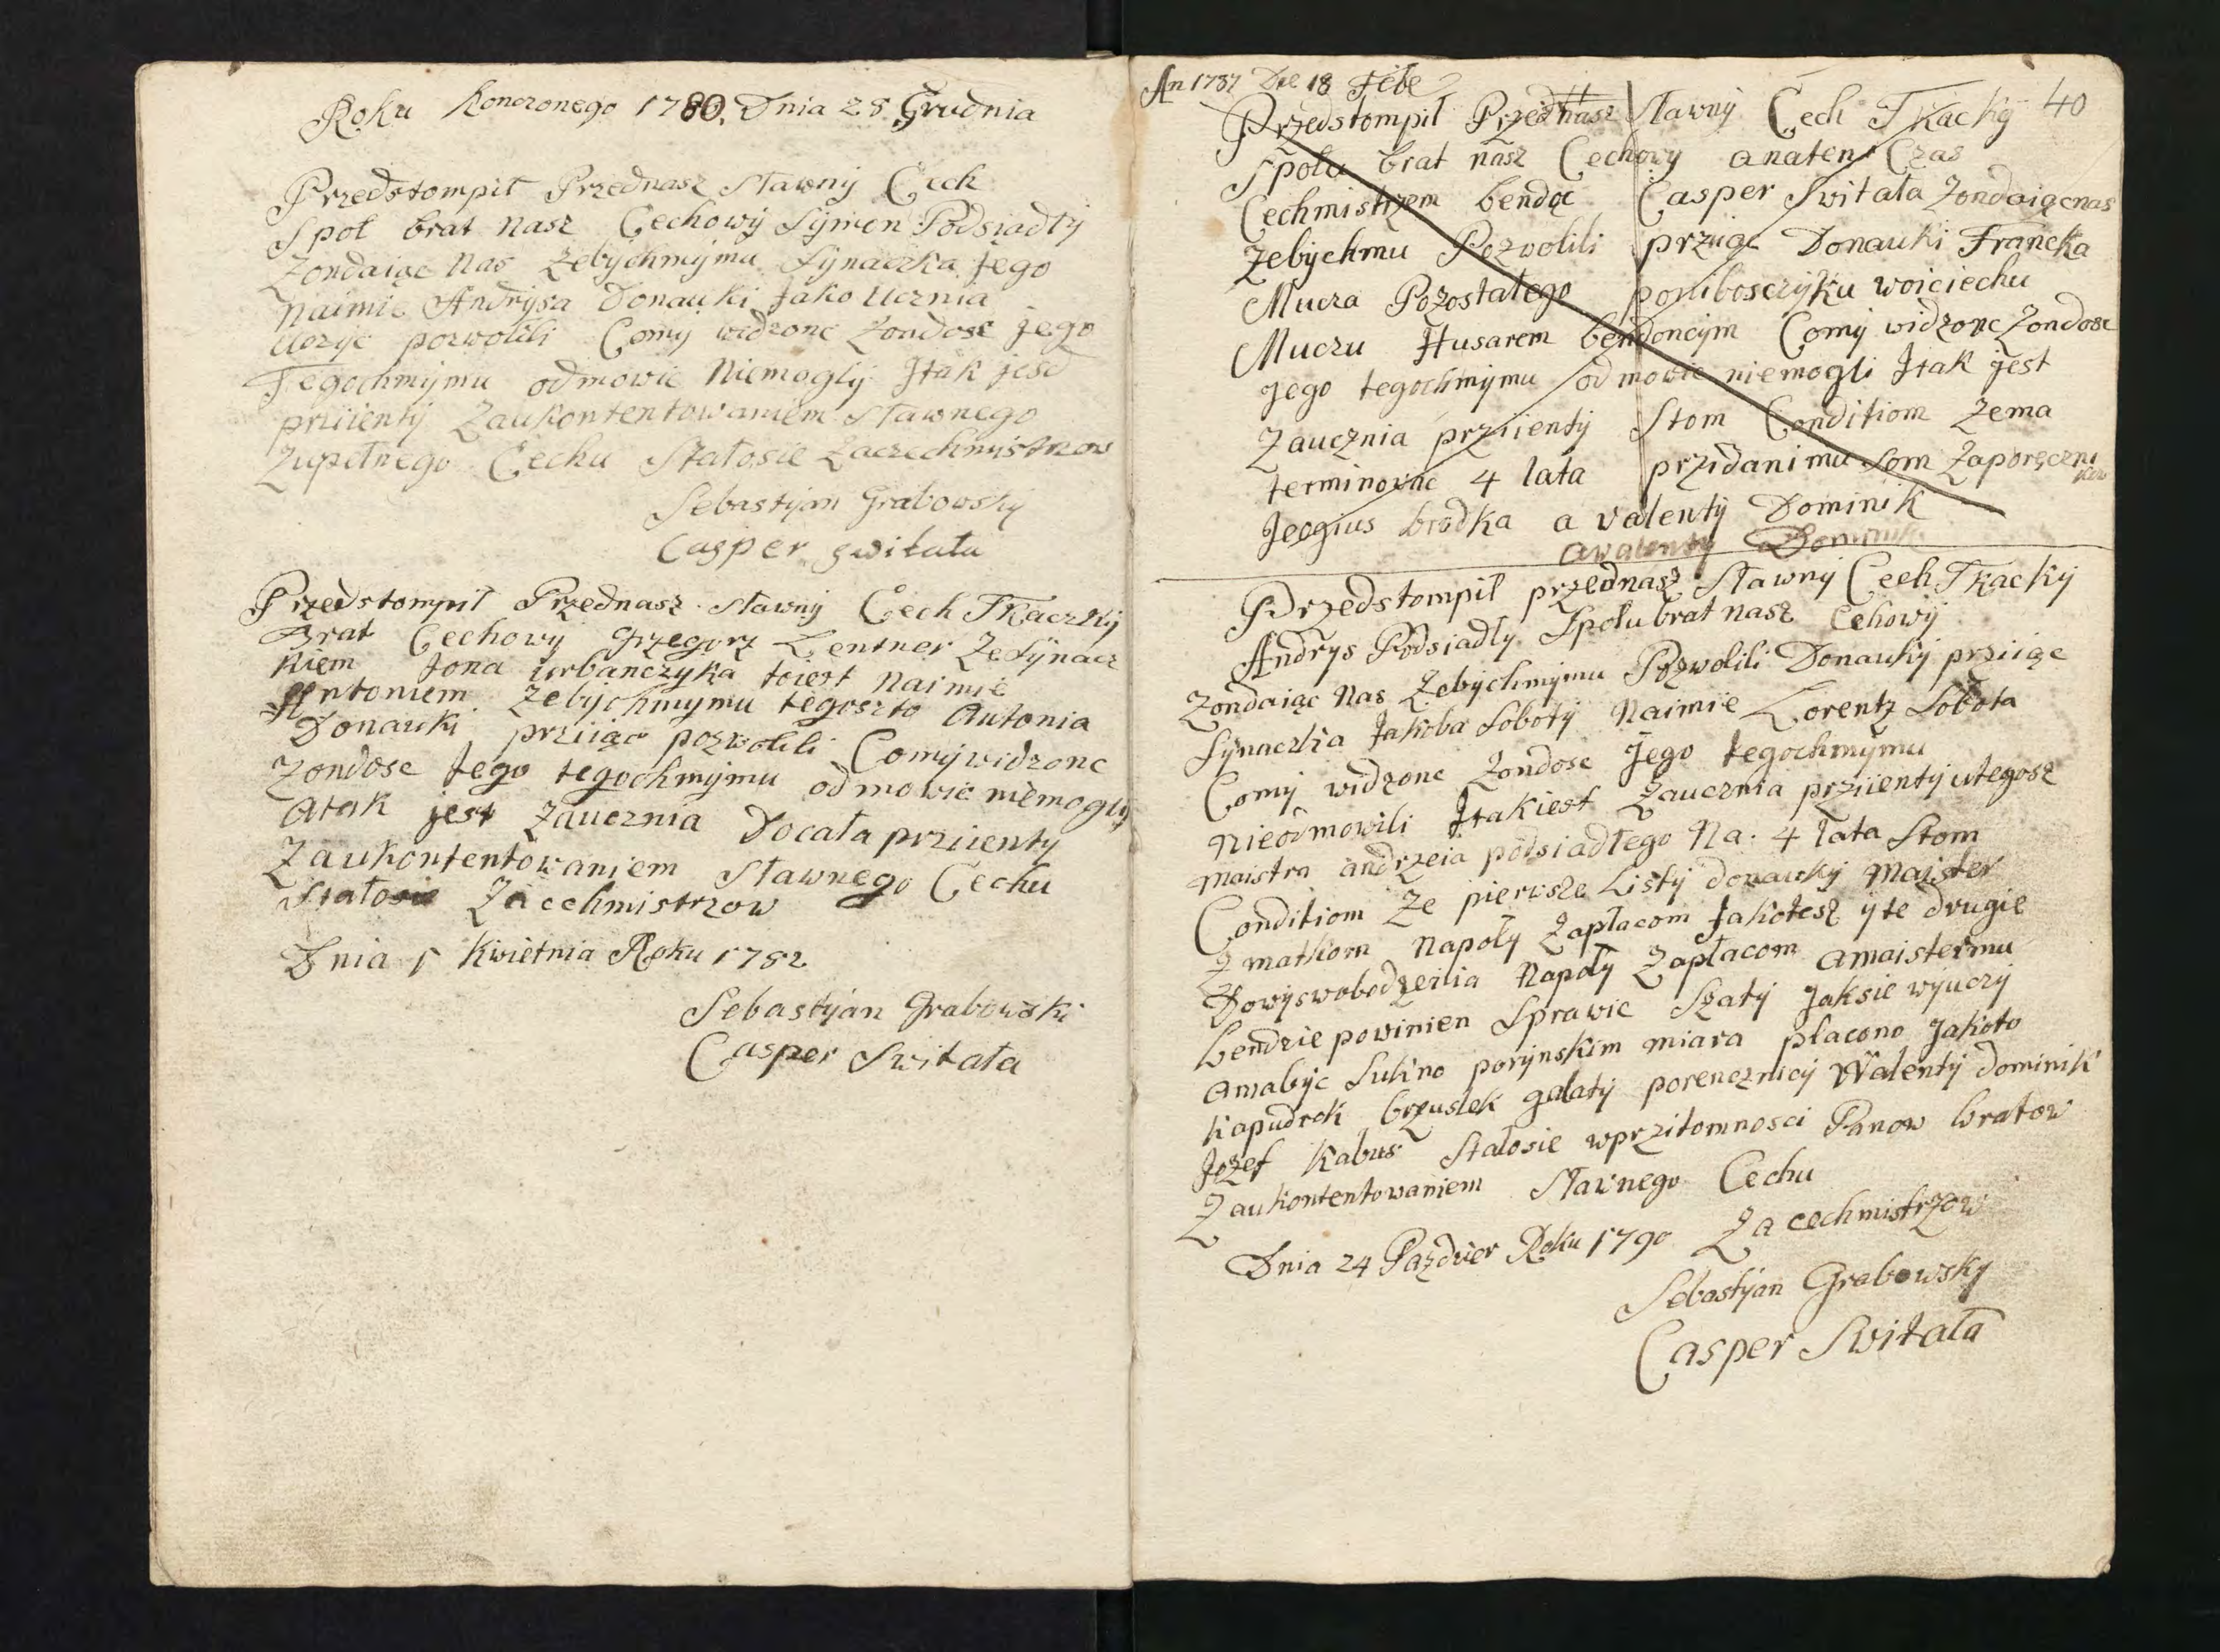 Roku Konczonego 1780, Dnia 28 Grudnia
Przedstompił Przednasz Sławnÿ Cech
Społ brat nasz Cechowÿ Sÿmon Podsiadłÿ
Zondaiąc Nas Zebÿchmÿmu Sÿnaczka Jego
Naimie Andrÿsa Donauki Jako Ucznia
Uczÿc pozwolili Comÿ widzonc Zondosc jego
Tegochmÿmu odmowic Niemoglÿ Jtak jesd
priiientÿ Zaukontentowaniem Sławnego
Zupełnego Cechu Stałosie Zaczechmistrzow
Sebastÿan Grabowskÿ
Casper Switała
Przedstompił Przednasz Sławnÿ Cech Tkaczkÿ
Brat Cechowÿ Grzegorz Lentner Ze Sÿnacz
kiem Jona Urbanczyka toiest Naimie
Antoniem Zebÿchmymu tegoszto Antonia
Donauki prziiąc pozwolili Comÿwidzonc
Zondosc Jego tegochmÿmu odmowic niemoglÿ
Atak jest Zaucznia Docała prziientÿ
Zaukontentowaniem Sławnego Cechu
Stałosie Zacechmistrzow
Dnia 1 Kwietnia Roku 1782
Sebastÿan Grabowski
Casper Switała
An 1787 Die 18 Febe 40
Przedstompił Przednasz Sławnÿ Cech Tkackÿ
Spolu brat nasz Cechowÿ anaten Czas
Cechmistrzem bendąc Casper Switała Zondaiącnas
Zebÿchmu Pozwolili prziiąc Donauki Francka
Mucza Pozostałego poniboszczÿku woiciechu
Muczu Husarem bendoncÿm Comÿ widzonc Zondosc
Jego tegochmÿmu odmowic niemogli Jtak jest
Zaucznia prziientÿ Stom Conditiom Zema
terminowac 4 lata przidani mu som Zaporęczni
kow
Jeogius brodka a valentÿ Dominik
a walentÿ Dominik
Przedstompił przednasz Sławnÿ Cech Tkackÿ
Andrÿs Podsiadłÿ Spolubrat nasz Cehowÿ
Zondaiąc Nas Zebychmÿmu Pozwolili Donaukÿ prziiąc
Sÿnaczka Jakoba Sobotÿ Naimie Lorentz Sobota
Comÿ widzonc Zondosc Jego tegochmÿmu
Nieodmowili Jtakiest Zaucznia prziientÿ utegosz
maistra andrzeia podsiadłego Na: 4 lata Stom
Conditiom Ze pierwsze Listÿ donaukÿ Majster
Z matkom Napolÿ Zapłacom Jakotesz ÿ te drugie
Dowÿswobodzenia Napolÿ Zapłacom amaistermu
bendzie powinien Sprawic Szatÿ Jaksie wÿuczÿ
amabÿc Sukno porÿnskim miara płacono Jakoto
kapudrok brzuslek galatÿ porencznicÿ Walentÿ dominik
Jozef Kabus Stałosie wprzitomnosci Panow bratow
Zaukontentowaniem Sławnego Cechu
Dnia 24 Pazdzier Roku 1790 Za cechmistrzow
Sebastÿan Grabowskÿ
Casper Switała